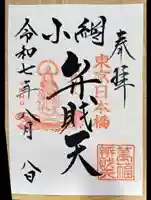 奉拝
東京日本橋
小網
弁財天
令和七年八月八日
萬福